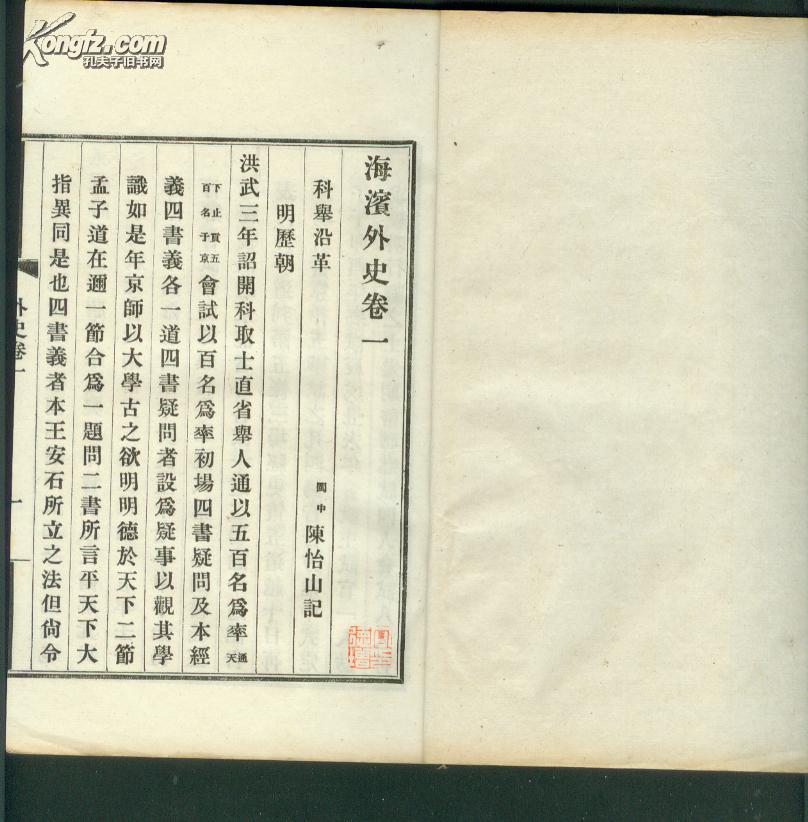 Kongfz.com
孔夫子旧书网
海濱外史卷一
科舉沿革 閩中 陳怡山記
明歷朝
洪武三年詔開科取士直省舉人通以五百名爲率通天
下止貢五百名于京會試以百名爲率初場四書疑問及本經
義四書義各一道四書疑問者設爲疑事以觀其學
識如是年京師以大學古之欲明明德於天下二節
孟子道在邇一節合爲一題問二書所言平天下大
指異同是也四書義者本王安石所立之法但尙令
外史卷一
一